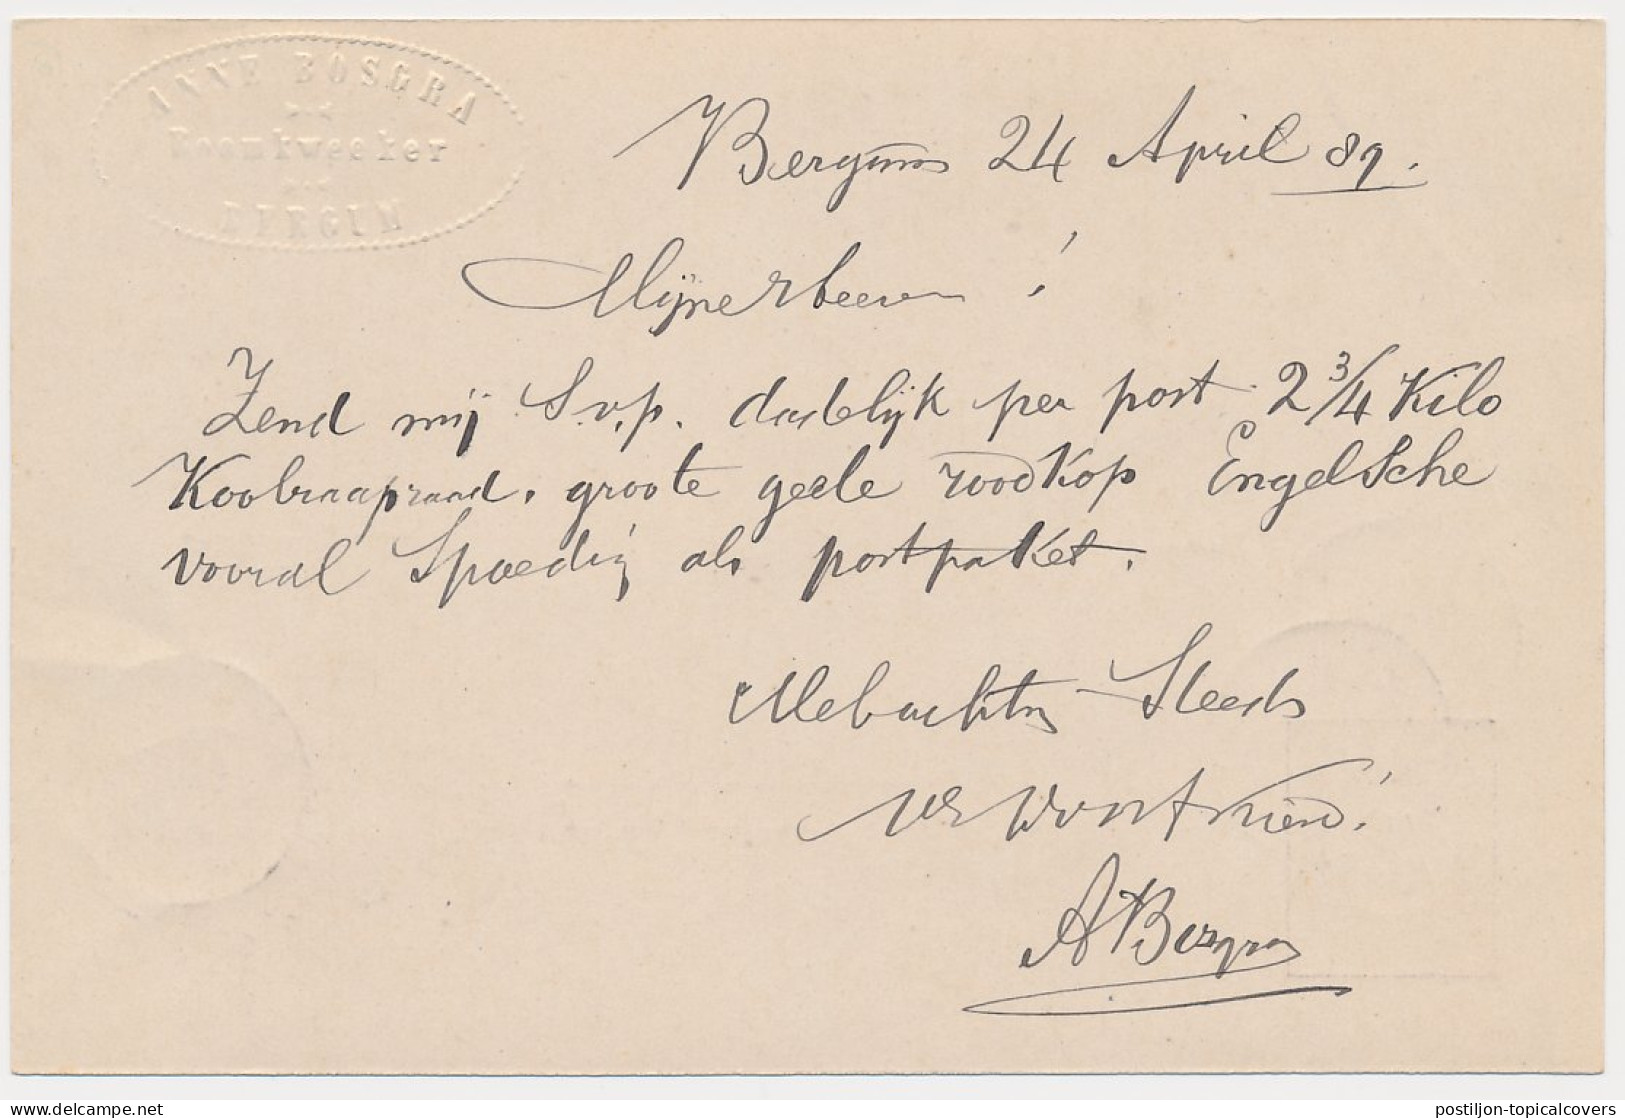 ANNE BOSGRA
Boomkweeker
BERGUM
Bergum 24 April 89.
Mijne Heeren !
Zend mij S.v.p. dadelijk per post 2 3/4 Kilo
Koolraapzaad. groote geele roodkop Engelsche
vooral Spoedig als postpaket.
Steeds
A Bosgra
postiljon-topicalcovers